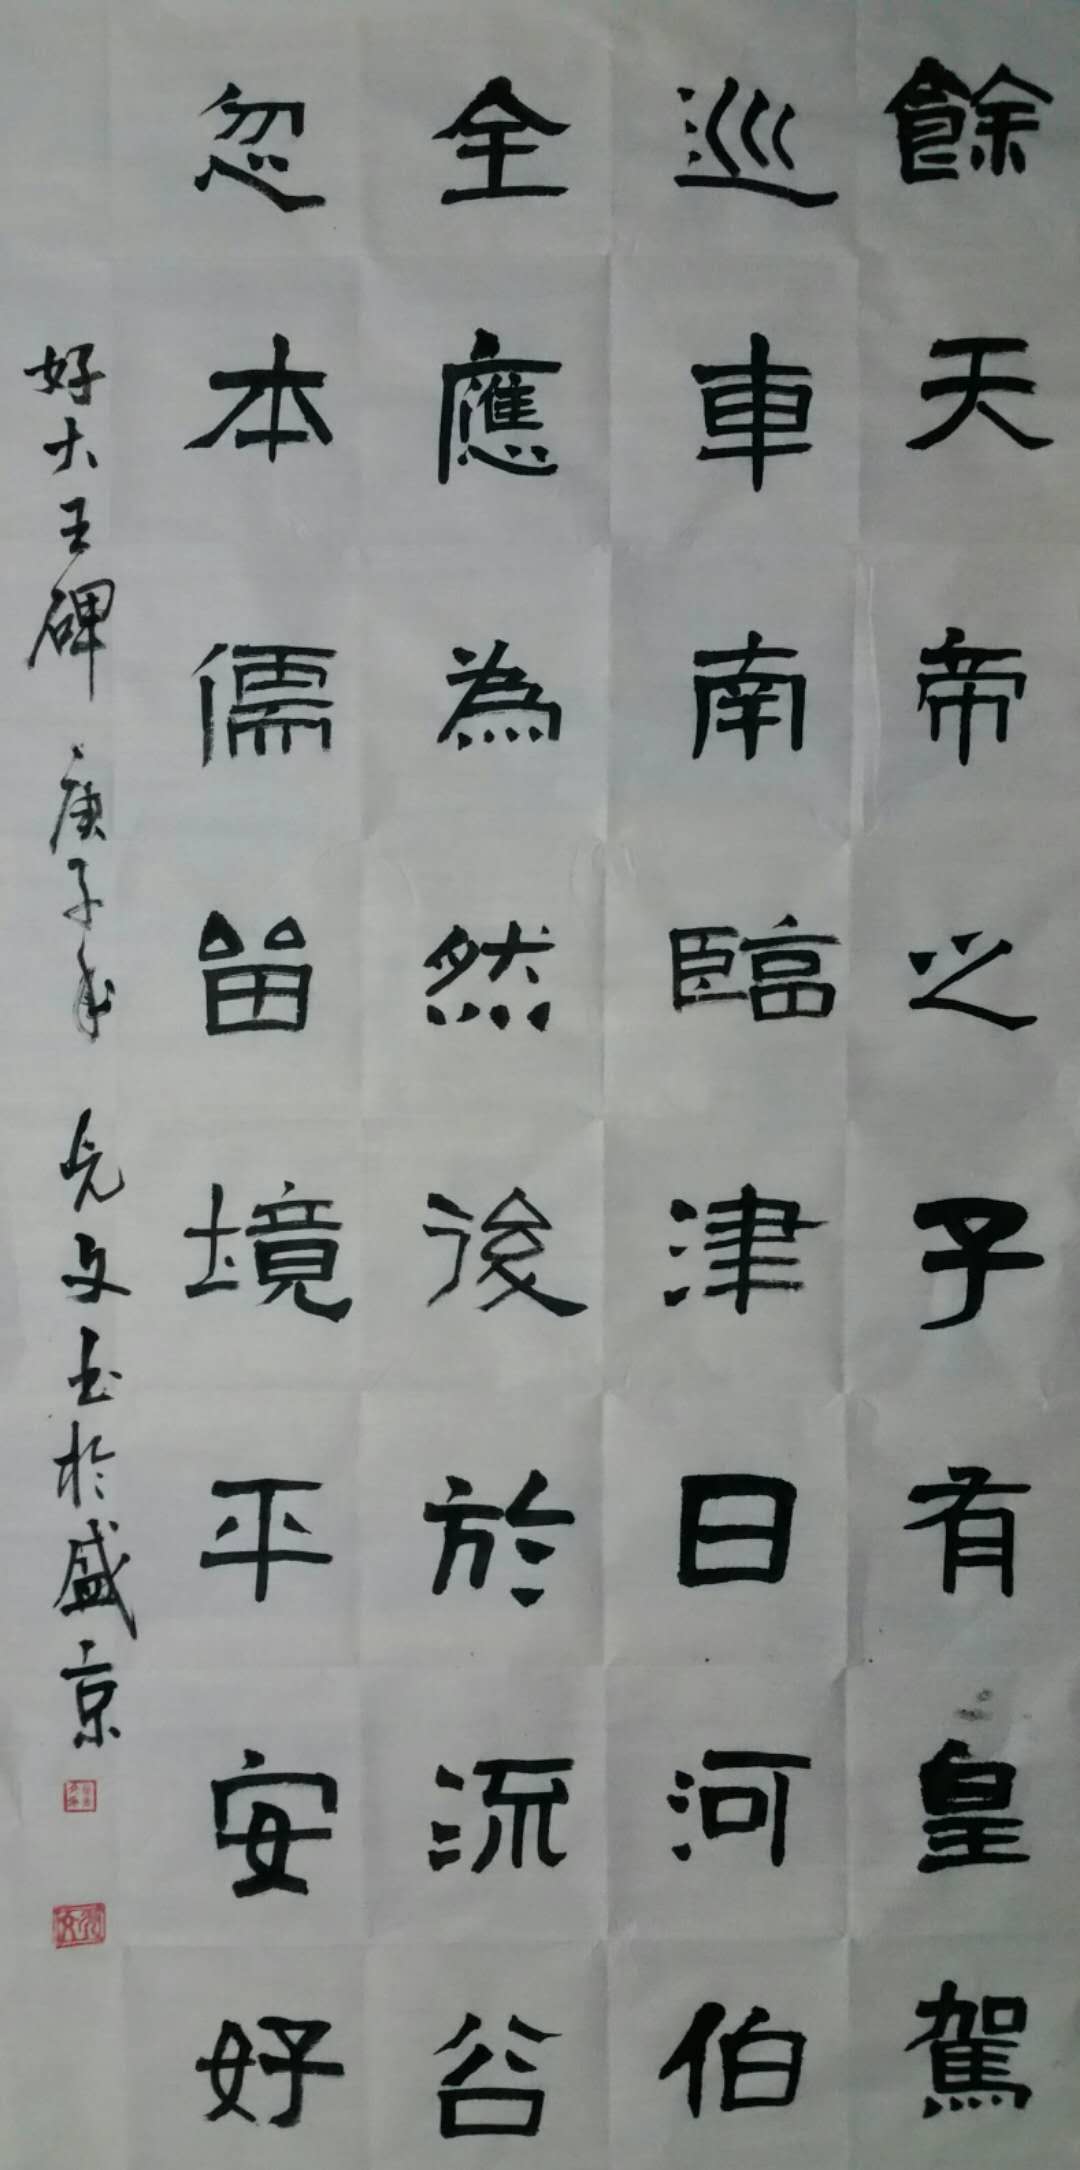 餘天帝之子有皇駕
巡車南臨津日河伯
全應為然後於流谷
忽本儒畱境平安好
好大王碑 庚子年 文书於盛京